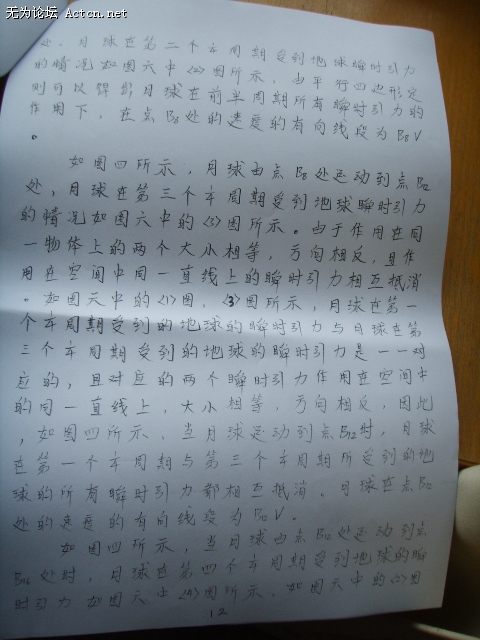 无为论坛 Actcn.net
处，月球在第二个半周期受到地球瞬时引力
的情况如图六中〈2〉图所示，由平行四边形定
则可以得出月球在前半周期所有瞬时引力的
作用下，在点B8处的速度的有向线段为B8V
。
如图四所示，月球由点B8处运动到点B12
处，月球在第三个半周期受到地球瞬时引力
的情况如图六中的〈3〉图所示。由于作用在同
一物体上的两个大小相等，方向相反，且作
用在空间中同一直线上的瞬时引力相互抵消
。如图六中的〈1〉图，〈3〉图所示，月球在第一
个半周期受到的地球的瞬时引力与月球在第
三个半周期受到的地球的瞬时引力是一一对
应的，且对应的两个瞬时引力作用在空间中
的同一直线上，大小相等，方向相反，因此
，如图四所示，当月球运动到点B12时，月球
在第一个半周期与第三个半周期所受到的地
球的所有瞬时引力都相互抵消。月球在点B12
处的速度的有向线段为B12V。
如图四所示，当月球由点B12处运动到点
B16处时，月球在第四个半周期受到地球的瞬
时引力如图六中〈4〉图所示，如图六中的〈2〉图
12